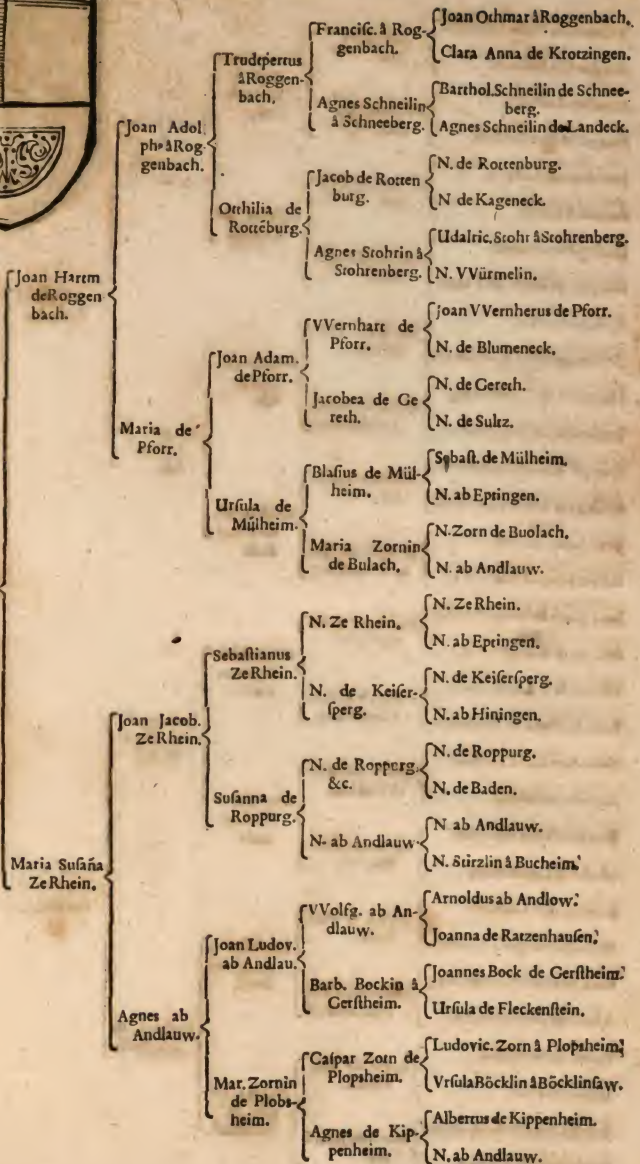 Joan Hartm
deRoggen
bach.
Maria Suſaña
ZeRhein.
Joan Adol.
phꝰ âRog-
genbach.
Maria de
Pforr.
Joan Jacob.
ZeRhein.
Agnes ab
Andlauw.
Trudtpertus
âRoggen-
bach.
Otthilia de
Rottēburg.
Joan Adam.
dePforr.
Urſula de
Mülheim.
Sebaſtianus
ZeRhein.
Suſanna de
Roppurg.
Joan Ludov.
ab Andlau.
Mar. Zornin
de Plobs-
heim.
Franciſc. â Rog-
genbach.
Agnes Schneilin
â Schneeberg.
Jacob de Rotten
burg.
Agnes Stohrin â
Stohrenberg.
VVernhart de
Pforr.
Jacobea de Ge
reth.
Blaſius de Mül-
heim.
Maria Zornin
de Bulach.
N. Ze Rhein.
N. de Keiſer-
ſperg.
N. de Ropperg.
&c.
N. ab Andlauw
VVolfg. ab An-
dlauw.
Barb. Bockin â
Gerſtheim.
Caſpar Zorn de
Plopsheim.
Agnes de Kip-
penheim.
Joan Othmar âRoggenbach.
Clara Anna de Krotzingen.
Barthol.Schneilin de Schnee-
berg.
Agnes Schneilin de Landeck.
N. de Rottenburg.
N de Kageneck.
Udalric. Stohr âStohrenberg.
N. VVürmelin.
Joan VVernherus de Pforr.
N. de Blumeneck.
N. de Gereth.
N. de Sultz.
Sebaſt. de Mülheim.
N. ab Eptingen.
N. Zorn de Buolach.
N. ab Andlauw.
N. ZeRhein.
N. ab Eptingen.
N. de Keiſerſperg.
N. ab Hiningen.
N. de Roppurg.
N. de Baden.
N ab Andlauw.
N. Stürzlin â Bucheim.
Arnoldus ab Andlow.
Joanna de Ratzenhauſen.
Joannes Bock de Gerſtheim.
Urſula de Fleckenſtein.
Ludovic. Zorn â Plopsheim.
VrſulaBöcklin âBöcklinſaw.
Albertus de Kippenheim.
N. ab Andlauw.